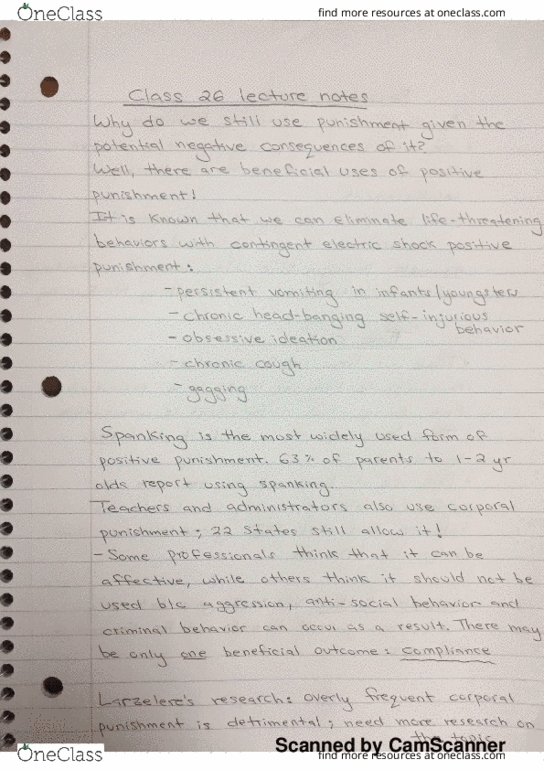 OneClass
find more resources at oneclass.com
Class 26 lecture notes
Why do we still use punishment given the
potential negative consequences of it?
Well, there are beneficial uses of positive
punishment!
It is known that we can eliminate life-threatening
behaviors with contingent electric shock positive
punishment:
- persistent vomiting in infants/youngsters
- chronic head-banging self-injurious
behavior
- obsessive ideation
- chronic cough
- gagging
Spanking is the most widely used form of
positive punishment. 63% of parents to 1-2 yr
olds report using spanking.
Teachers and administrators also use corporal
punishment; 22 states still allow it!
- Some professionals think that it can be
affective, while others think it should not be
used b/c aggression, anti-social behavior and
criminal behavior can occur as a result. There may
be only one beneficial outcome: compliance
Larzelere's research: overly frequent corporal
punishment is detrimental; need more research on
the topic
Scanned by CamScanner
OneClass
find more resources at oneclass.com